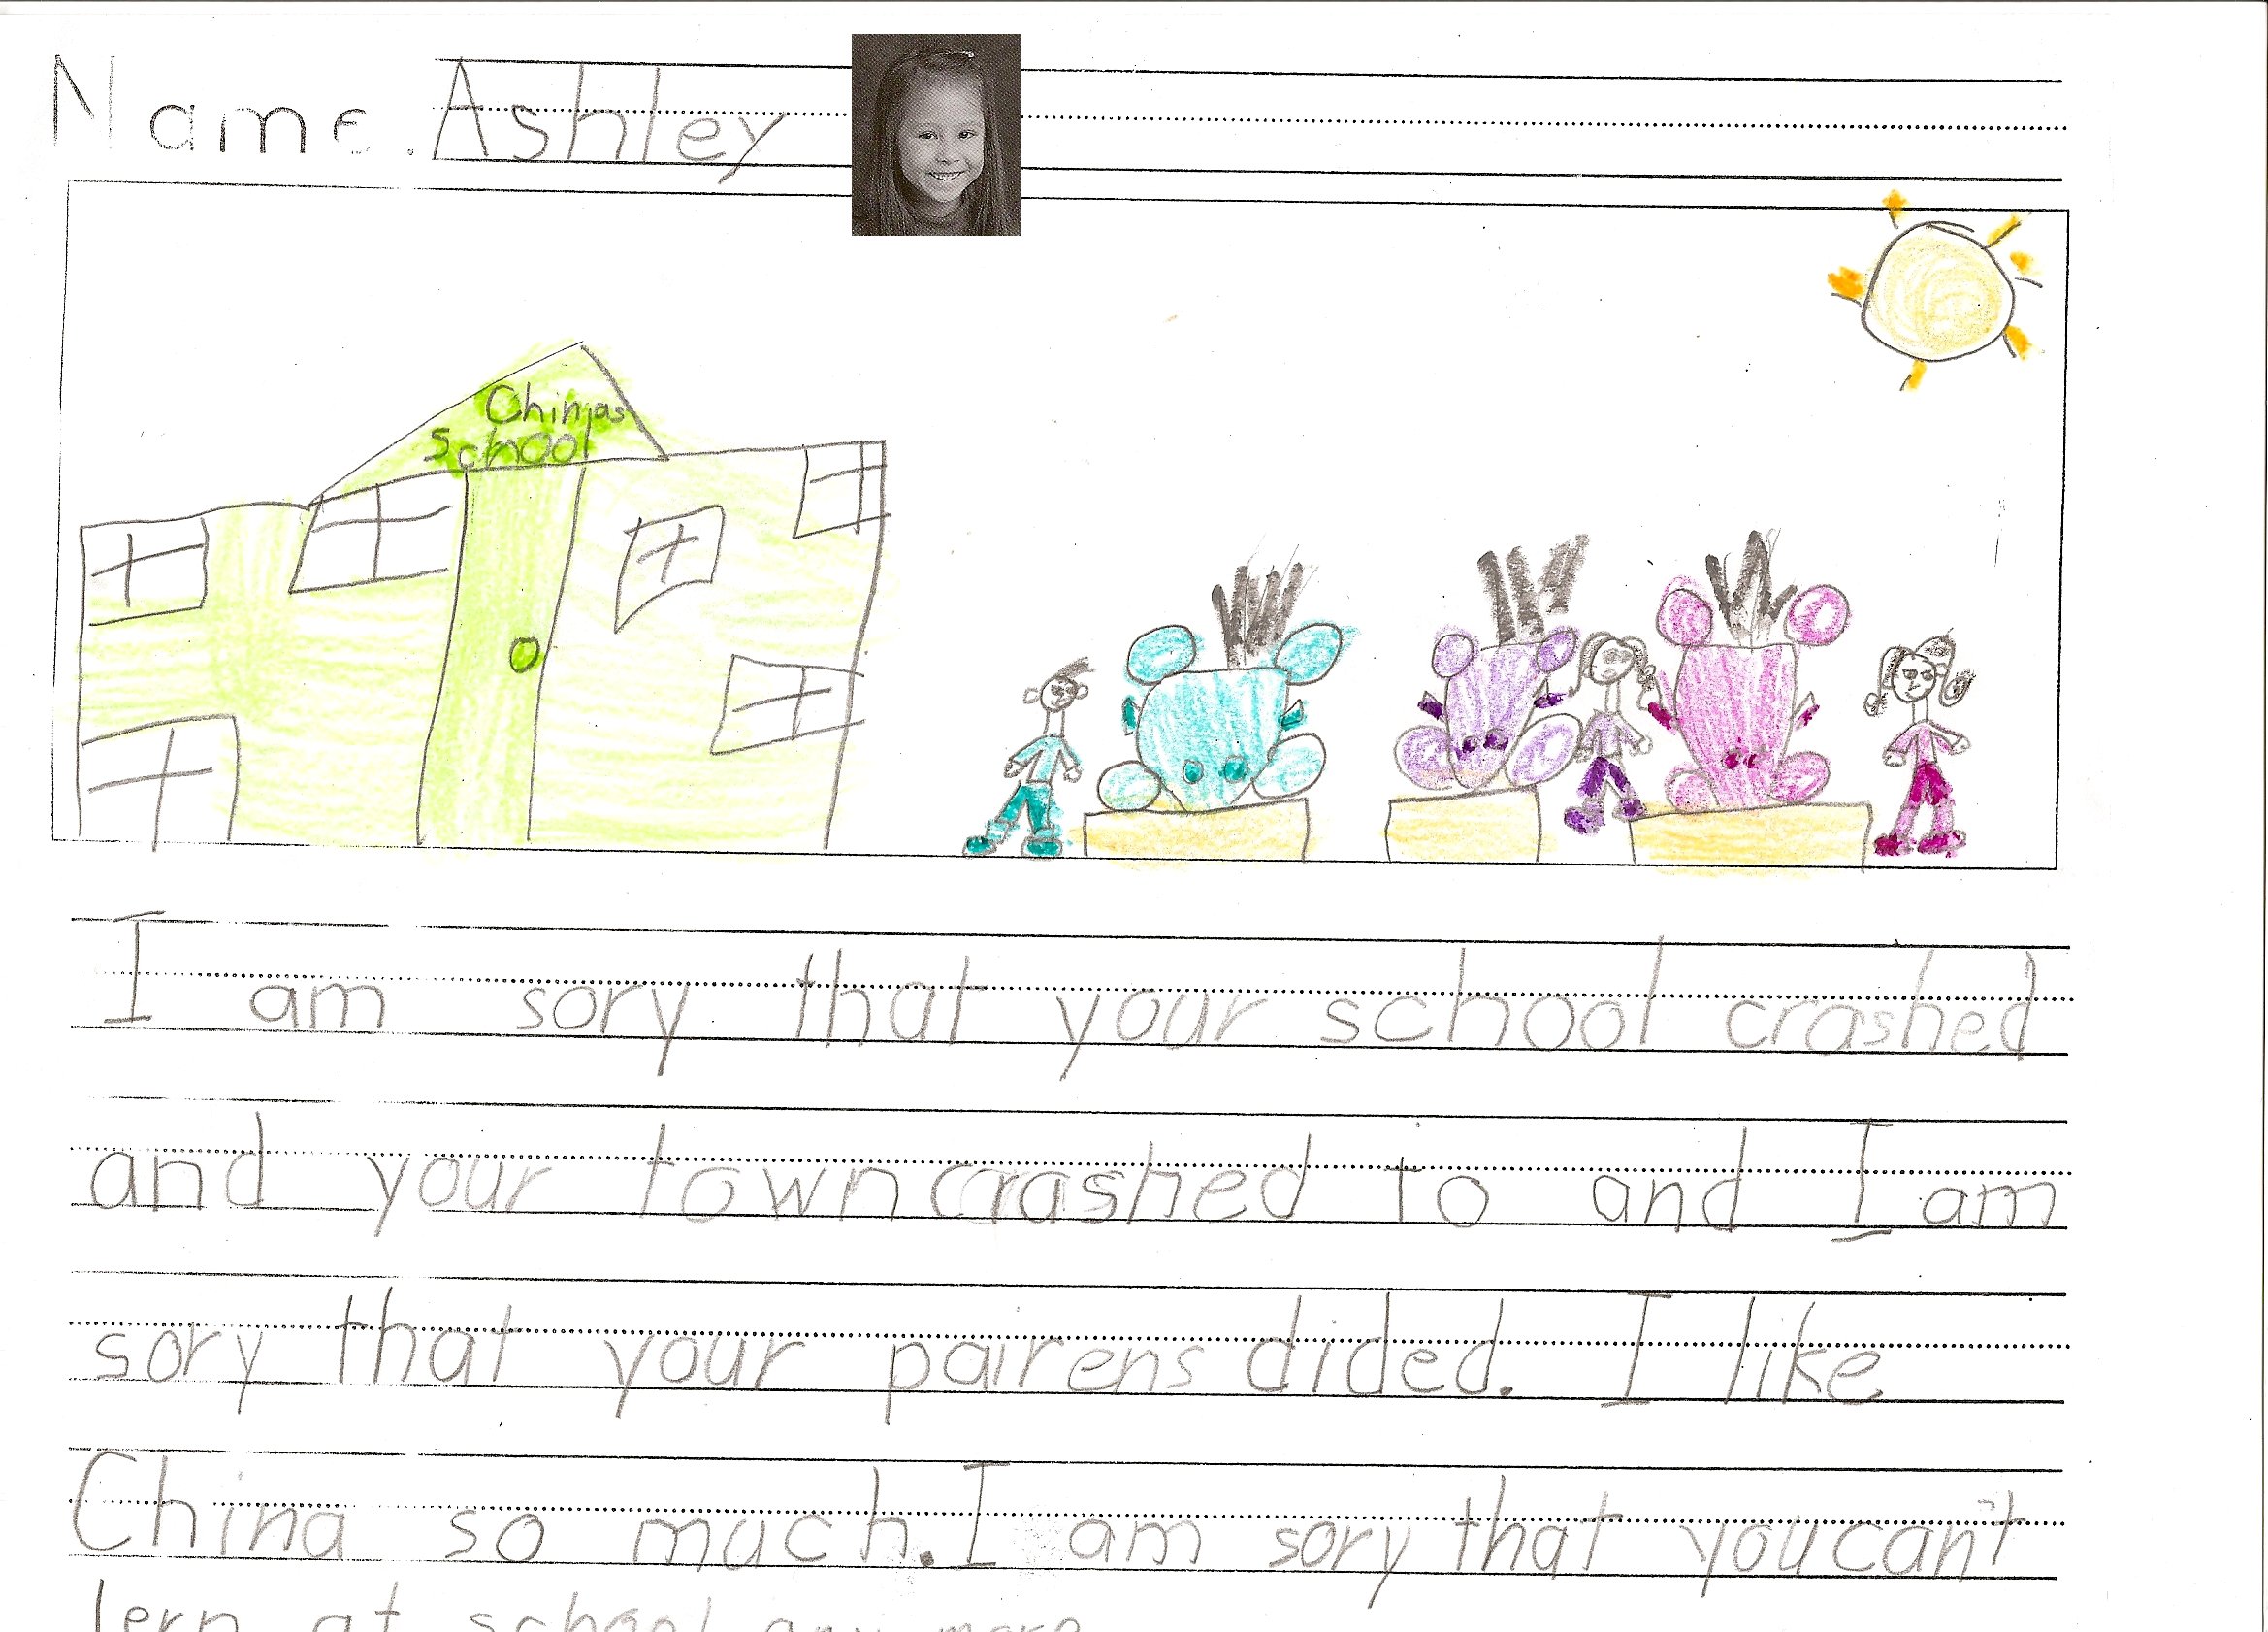 Name. Ashley
Chinas
School
I am sory that your school crashed
and your town crashed to and I am
sory that your pairens dided. I like
China so much. I am sory that you can't
lern at school any more